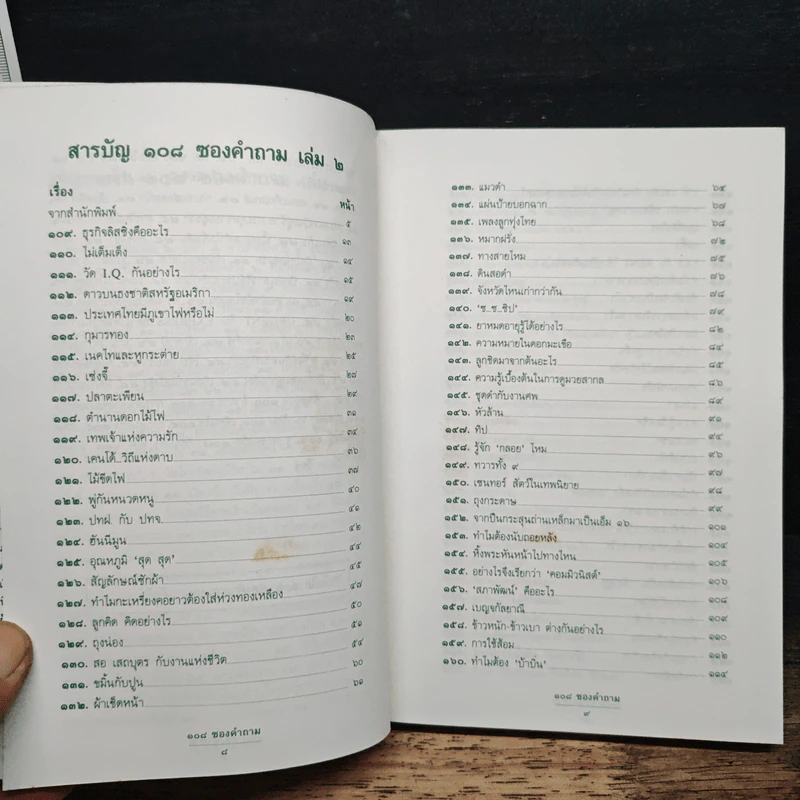 สารบัญ ๑๐๘ ซองคำถาม เล่ม ๒
เรื่อง หน้า
จากสำนักพิมพ์ ๕
๑๐๙. ธุรกิจลิสซิ่งคืออะไร ๑๓
๑๑๐. ไม่เต็มเต็ง ๑๔
๑๑๑. วัด I.Q. กันอย่างไร ๑๕
๑๑๒. ดาวบนธงชาติสหรัฐอเมริกา ๑๙
๑๑๓. ประเทศไทยมีภูเขาไฟหรือไม่ ๒๐
๑๑๔. กุมารทอง ๒๓
๑๑๕. เนคไทและหูกระต่าย ๒๕
๑๑๖. เซ่งจี๊ ๒๘
๑๑๗. ปลาตะเพียน ๒๙
๑๑๘. ตำนานดอกไม้ไฟ ๓๑
๑๑๙. เทพเจ้าแห่งความรัก ๓๔
๑๒๐. เคนโด้...วิถีแห่งดาบ ๓๖
๑๒๑. ไม้ขีดไฟ ๓๗
๑๒๒. พู่กันหนวดหนู ๔๐
๑๒๓. ปทฝ. กับ ปทจ. ๔๑
๑๒๔. ฮันนีมูน ๔๒
๑๒๕. อุณหภูมิ 'สุด สุด' ๔๔
๑๒๖. สัญลักษณ์ซักผ้า ๔๕
๑๒๗. ทำไมกะเหรี่ยงคอยาวต้องใส่ห่วงทองเหลือง ๔๗
๑๒๘. ลูกคิด คิดอย่างไร ๕๐
๑๒๙. ถุงน่อง ๕๑
๑๓๐. สอ เสถบุตร กับงานแห่งชีวิต ๕๔
๑๓๑. ขมิ้นกับปูน ๖๐
๑๓๒. ผ้าเช็ดหน้า ๖๑
๑๐๘ ซองคำถาม
๘
๑๓๓. แมวดำ ๖๕
๑๓๔. แผ่นป้ายบอกฉาก ๖๗
๑๓๕. เพลงลูกทุ่งไทย ๖๘
๑๓๖. หมากฝรั่ง ๗๒
๑๓๗. ทางสายไหม ๗๕
๑๓๘. ดินสอดำ ๗๖
๑๓๙. จังหวัดไหนเก่ากว่ากัน ๗๘
๑๔๐. 'ช...ช...ชิป' ๗๙
๑๔๑. ยาหมดอายุรู้ได้อย่างไร ๘๒
๑๔๒. ความหมายในดอกมะเขือ ๘๔
๑๔๓. ลูกชิดมาจากต้นอะไร ๘๕
๑๔๔. ความรู้เบื้องต้นในการดูมวยสากล ๘๖
๑๔๕. ชุดดำกับงานศพ ๘๙
๑๔๖. หัวล้าน ๙๑
๑๔๗. ทิป ๙๔
๑๔๘. รู้จัก 'กลอย' ไหม ๙๕
๑๔๙. ทวารทั้ง ๙ ๙๗
๑๕๐. เซนทอร์ สัตว์ในเทพนิยาย ๙๘
๑๕๑. ถุงกระดาษ ๙๙
๑๕๒. จากปืนกระสุนถ่านเหล็กมาเป็นเอ็ม ๑๖ ๑๐๑
๑๕๓. ทำไมต้องนับถอยหลัง ๑๐๔
๑๕๔. หิ้งพระหันหน้าไปทางไหน ๑๐๕
๑๕๕. อย่างไรจึงเรียกว่า 'คอมมิวนิสต์' ๑๐๖
๑๕๖. 'สภาพัฒน์' คืออะไร ๑๐๘
๑๕๗. เบญจกัลยาณี ๑๐๙
๑๕๘. ข้าวหนัก-ข้าวเบา ต่างกันอย่างไร ๑๑๐
๑๕๙. การใช้ส้อม ๑๑๒
๑๖๐. ทำไมต้อง 'บ้าบิ่น' ๑๑๔
๑๐๘ ซองคำถาม
๙